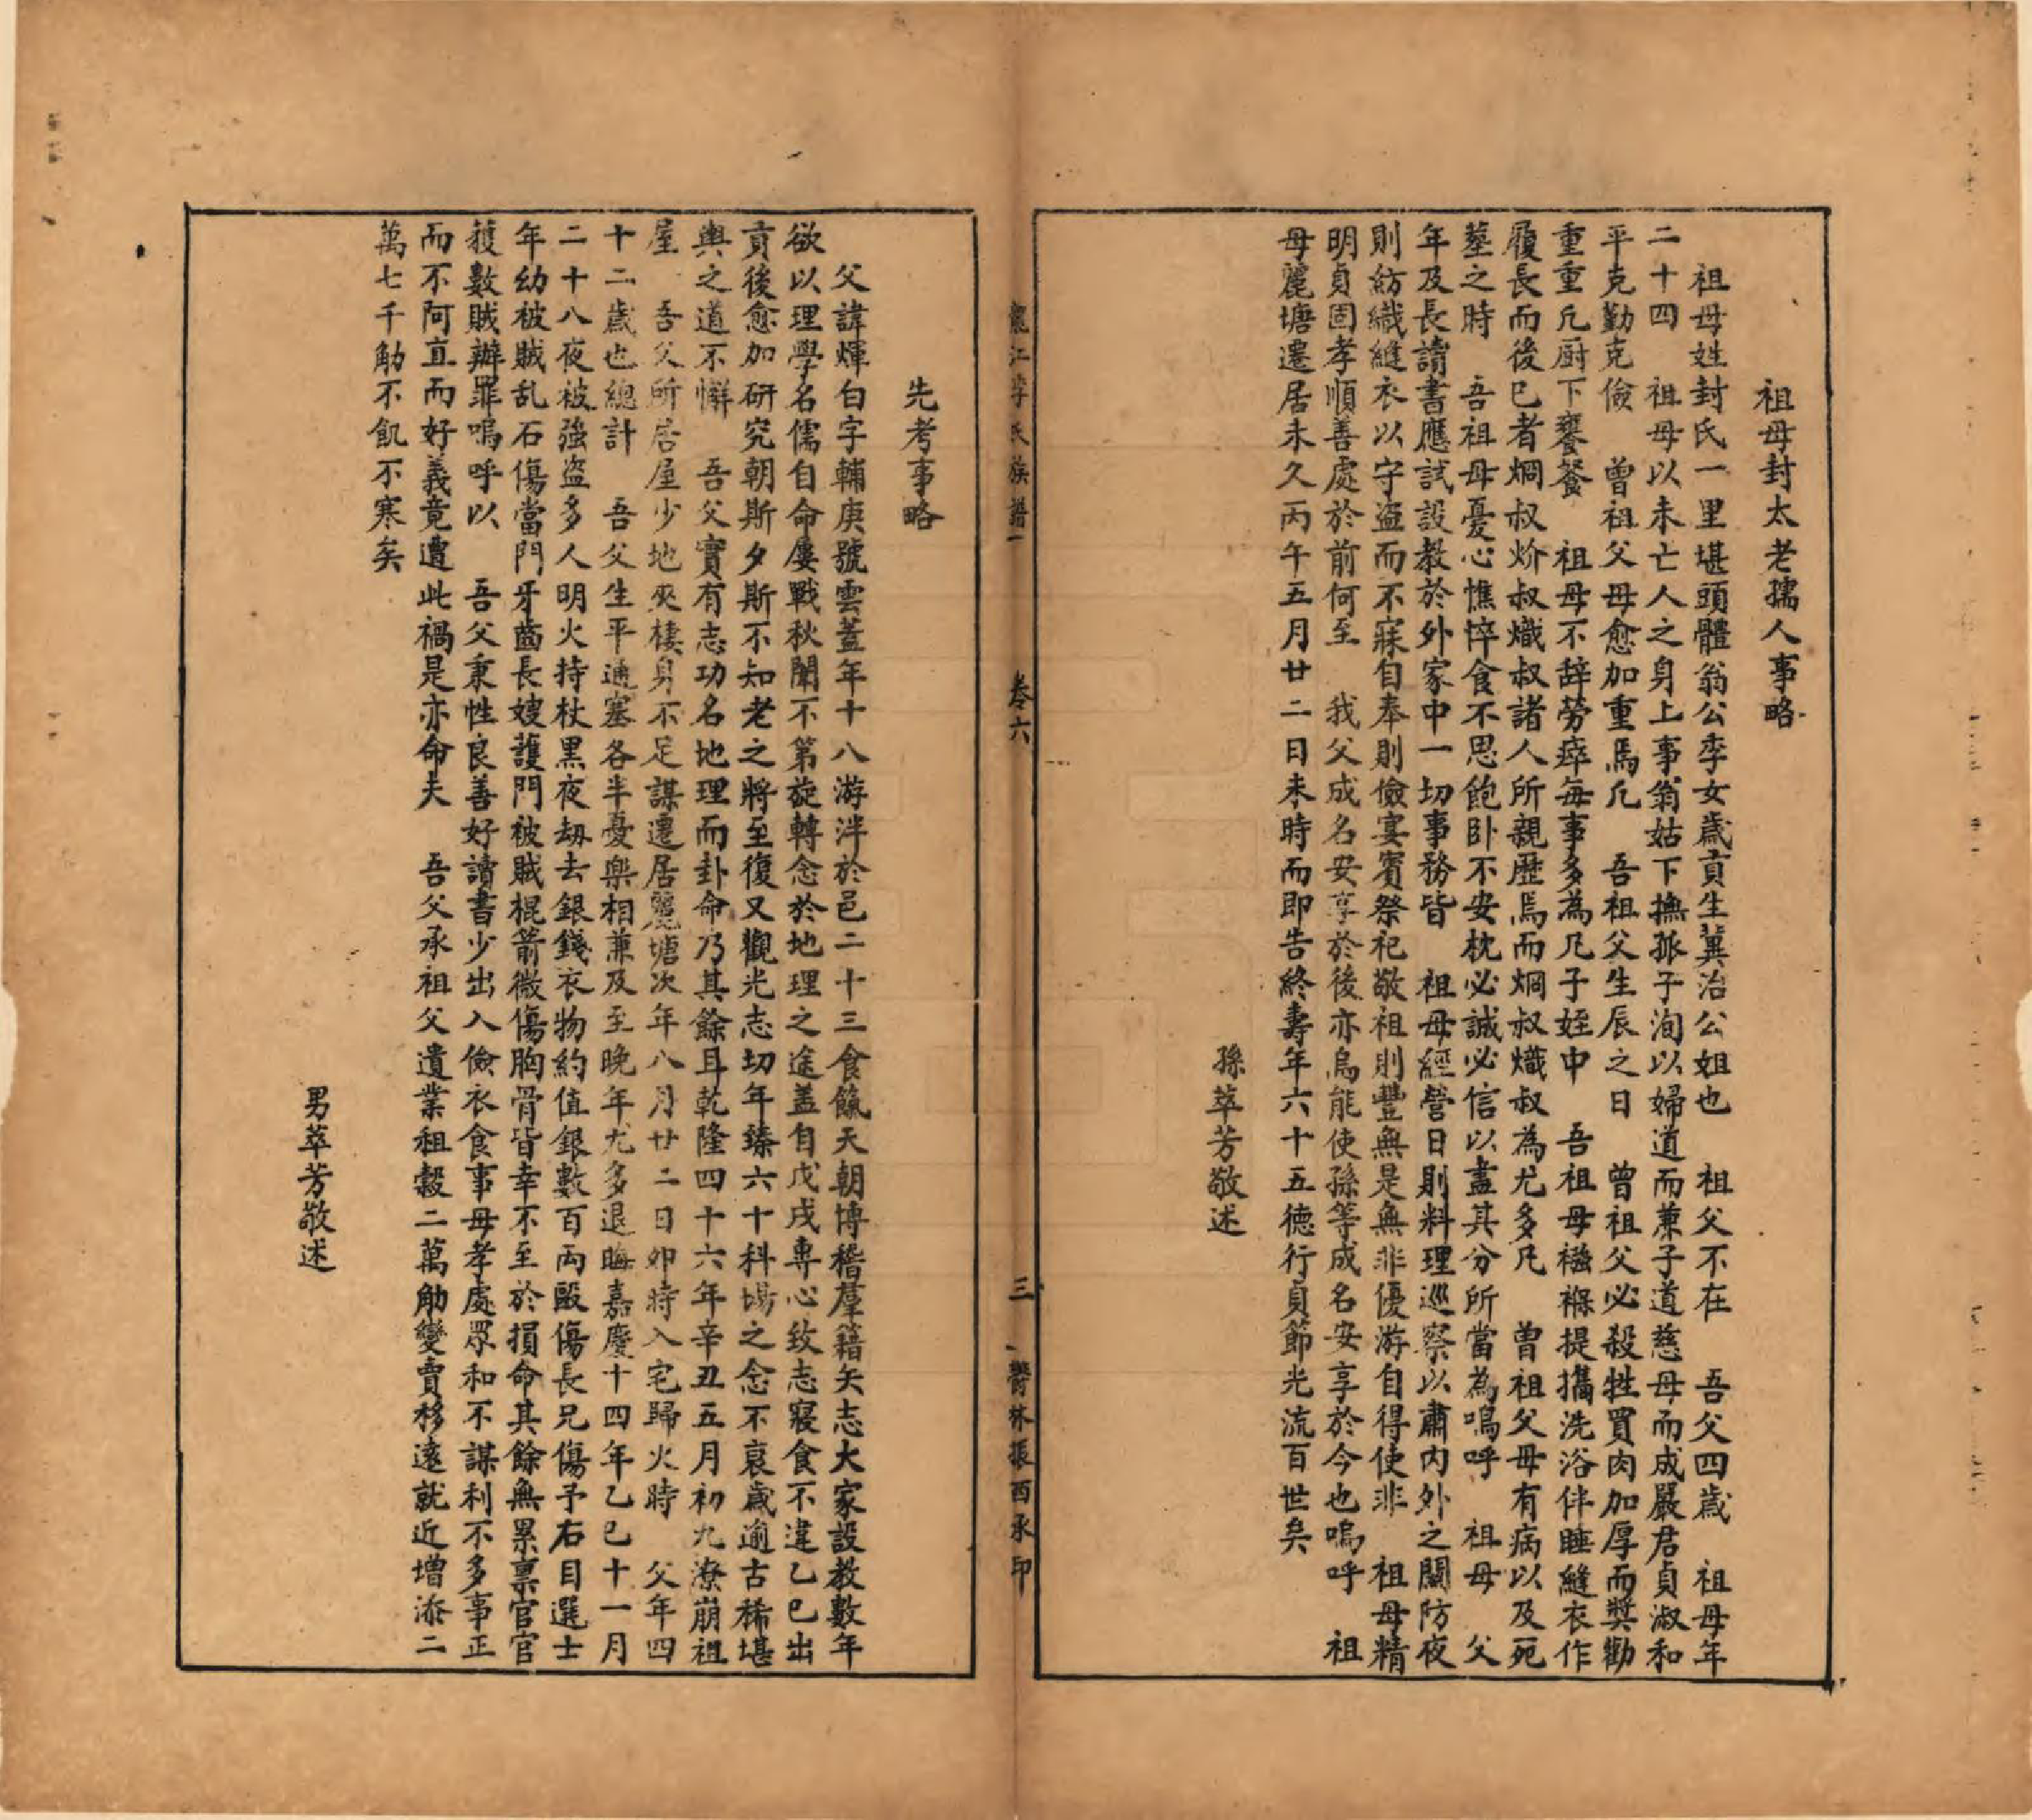 祖母封太老孺人事略
祖母姓封氏一里堪頭體翁公季女歲貢生冀治公姐也 祖父不在 吾父四歲 祖母年
二十四 祖母以未亡人之身上事翁姑下撫孤子洵以婦道而兼子道慈母而成嚴君貞淑和
平克勤克儉 曾祖父母愈加重焉凡 吾祖父生辰之日 曾祖父必殺牲買肉加厚而獎勸
重重凡厨下饔餐 祖母不辞勞瘁每事多為凡子姪中 吾祖母襁褓提攜洗浴伴睡縫衣作
履長而後已者烱叔炌叔熾叔諸人所親歷焉而烱叔熾叔為尤多凡 曽祖父母有病以及死
塟之時 吾祖母憂心憔悴食不思飽卧不安枕必誠必信以盡其分所當為嗚呼 祖母 父
年及長讀書應試設教於外家中一切事務皆 祖母經營日則料理巡察以肅内外之關防夜
則紡織縫衣以守盗而不寐自奉則儉宴賓祭祀敬祖則豐無是無非優游自得使非 祖母精
明貞固孝順善處於前何至 我父成名安享於後亦烏能使孫等成名安享於今也嗚呼 祖
母麗塘遷居未久丙午五月廿二日未時而即告終壽年六十五德行貞節光流百世矣
孫萃芳敬述
江李氏族譜 卷六 三 鬱林振西承印
先考事略
父諱煇白字輔庚號雲蓋年十八游泮於邑二十三食餼天朝博稽羣籍矢志大家設教數年
欲以理學名儒自命屢戰秋闈不第旋轉念於地理之途盖自戊戌專心致志寢食不違乙巳出
貢後愈加研究朝斯夕斯不知老之將至復又觀光志切年臻六十科場之念不哀歲逾古稀堪
輿之道不懈 吾父實有志功名地理而卦命乃其餘耳乾隆四十六年辛丑五月初九潦崩祖
屋 吾父所居屋少地夾棲身不足謀遷居麗塘次年八月廿二日卯時入宅歸火時 父年四
十二歲也總計 吾父生平通塞各半憂樂相兼及至晚年尤多退晦嘉慶十四年乙巳十一月
二十八夜被強盗多人明火持杖黑夜刼去銀錢衣物約值銀數百両毆傷長兄傷予右目選士
年幼被賊乱石傷當門牙齒長嫂護門被賊棍箭微傷胸骨皆幸不至於損命其餘無累禀官官
獲數賊辦罪嗚呼以 吾父秉性良善好讀書少出入儉衣食事母孝處眾和不謀利不多事正
而不阿直而好義竟遭此禍是亦命夫 吾父承祖父遺業租穀二萬觔變賣移遠就近增添二
萬七千觔不飢不寒矣
男萃芳敬述